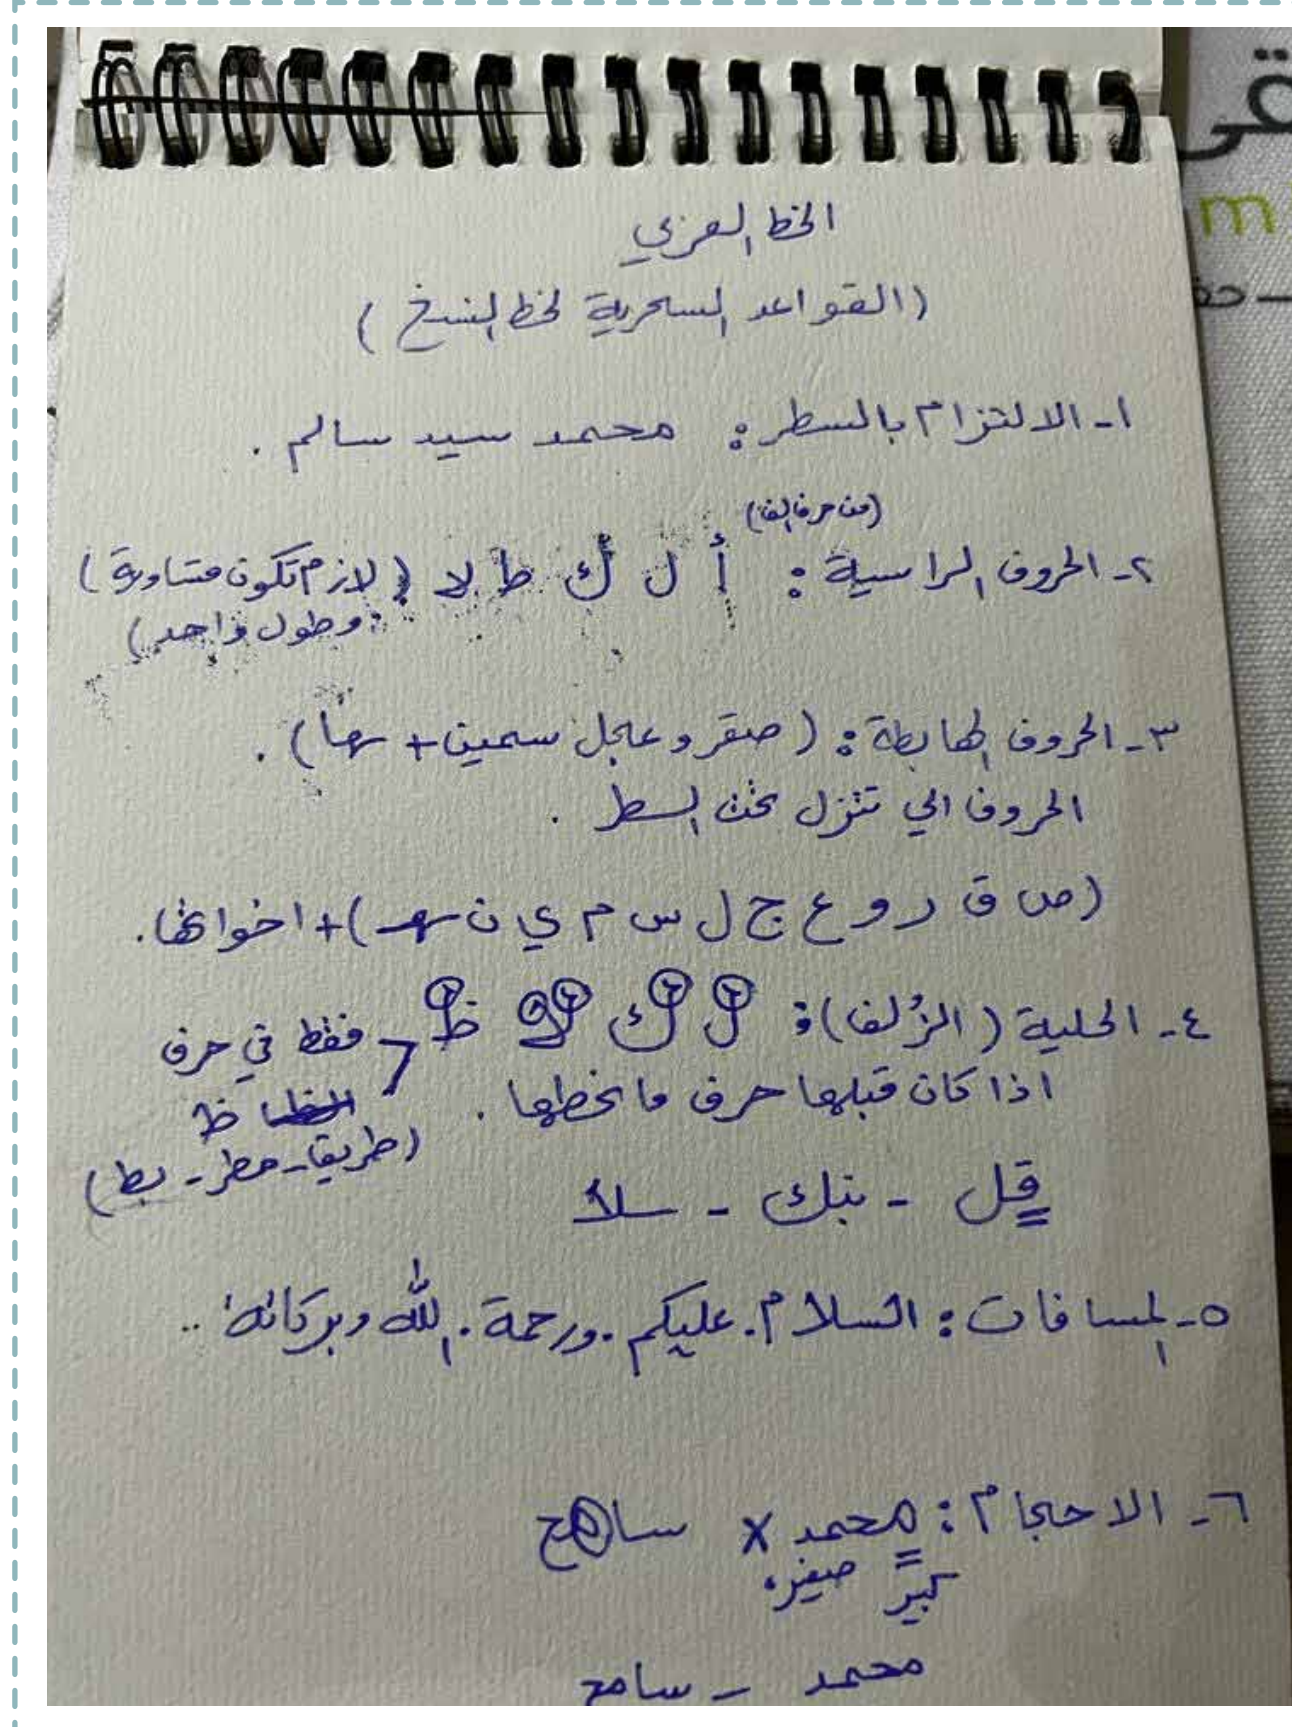 الخط العربي
(القواعد السحرية لخط النسخ)
١- الالتزام بالسطر: محمد سيد سالم.
(من حرف الف)
٢- الحروف الراسية: أ ل ك ط لا (لازم تكون متساوية)
وطول واحد)
٣- الحروف الهابطة: (صقر وعجل سمين + سها).
الحروف الي تنزل تحت السطر.
(ص ق ر و ع ج ل س م ي ن سهـ) + اخواتها.
٤- الحلية (الزُلف): ل ك لا ظ فقط في حرف
اذا كان قبلها حرف ما نحطها. ظ
(طريق - مطر - بط)
قل - بنك - سلا
٥- المسافات: السلام. عليكم. ورحمة. الله وبركاته..
٦- الاحجام: محمد x سامح
كبير صغير
محمد - سامح
قى
m
حف